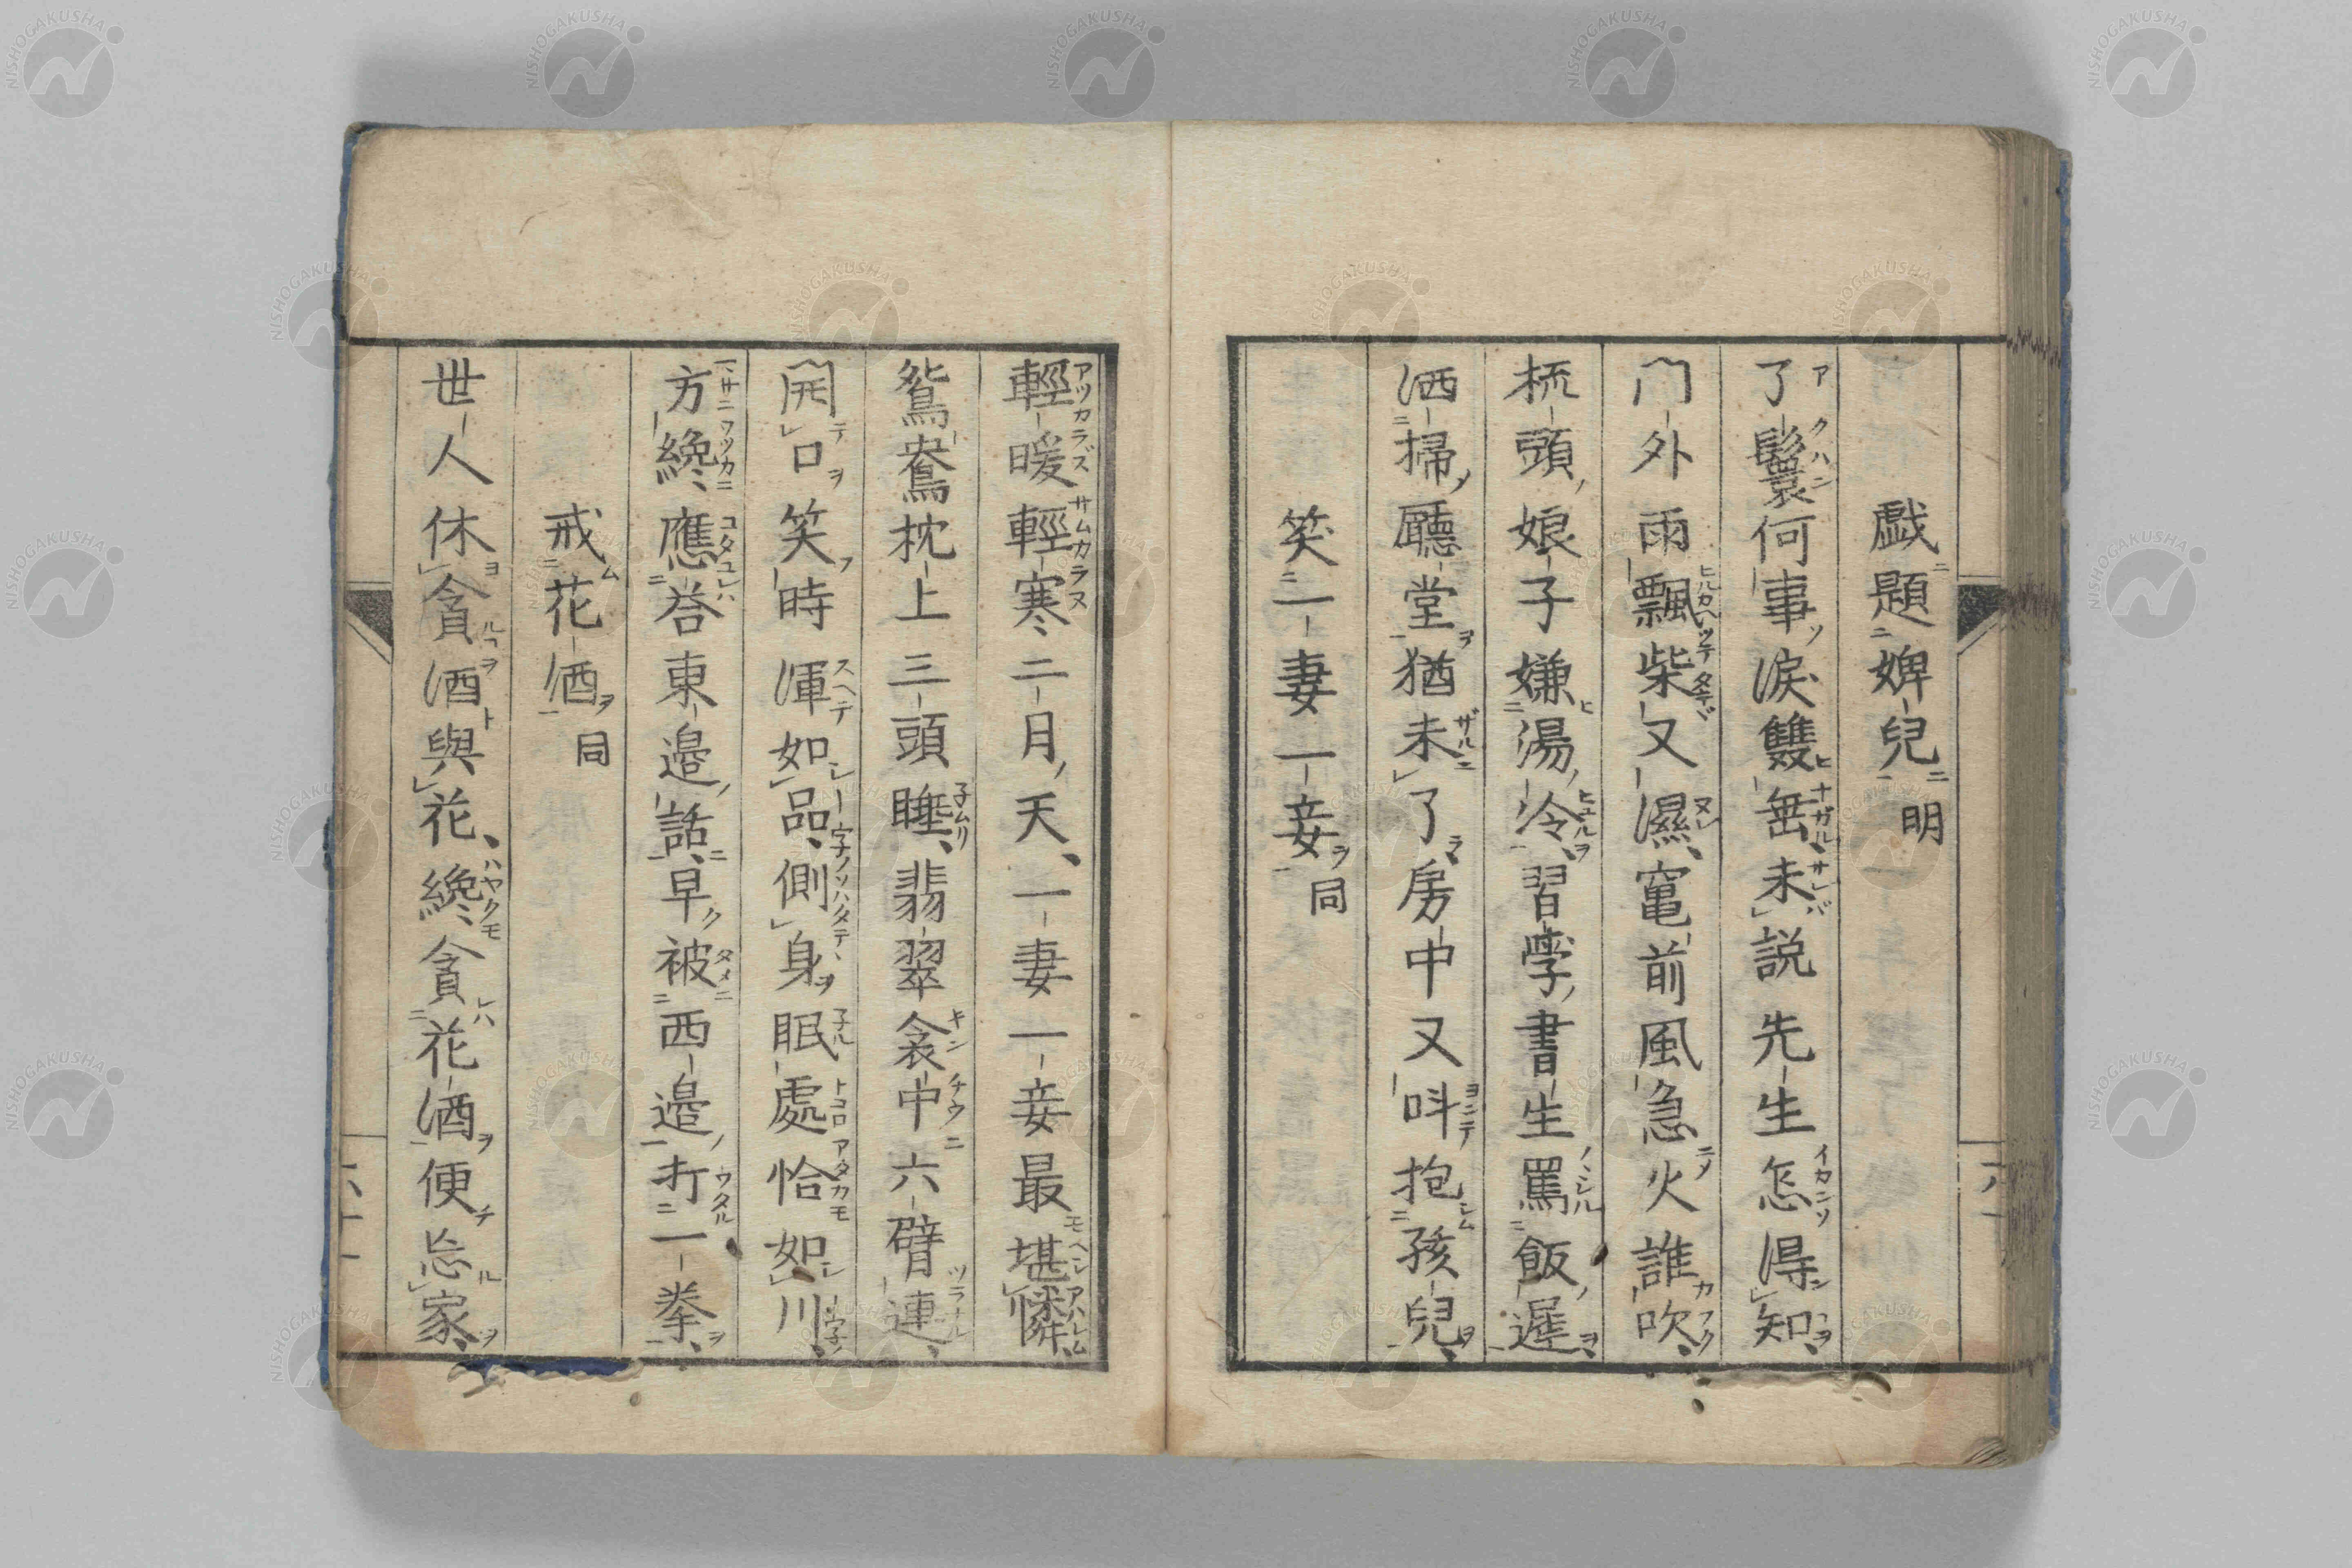 戯題婢兒 明
了鬟何事涙雙垂未説先生怎得知
門外雨飄柴又濕竃前風急火誰吹
梳頭娘子嫌湯冷習學書生罵飯遲
洒掃廳堂猶未了房中又呌抱孩兒
笑一妻一妾 同
輕暖輕寒二月天一妻一妾最堪憐
鴛鴦枕上三頭睡翡翠衾中六臂連
開口笑時渾如品側身眠處恰如川
方纔應荅東邉話早被西邉打一拳
戒花酒 同
世人休貪酒與花纔貪花酒便忘家